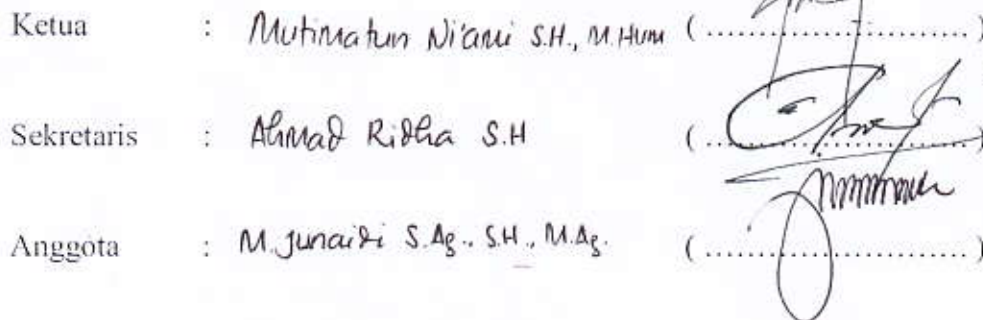 Ketua : Mutimatun Ni'ami S.H., M.Hum (........................)
Sekretaris : Ahmad Ridha S.H (........................)
Anggota : M. Junaidi S.Ag., S.H., M.Ag. (........................)